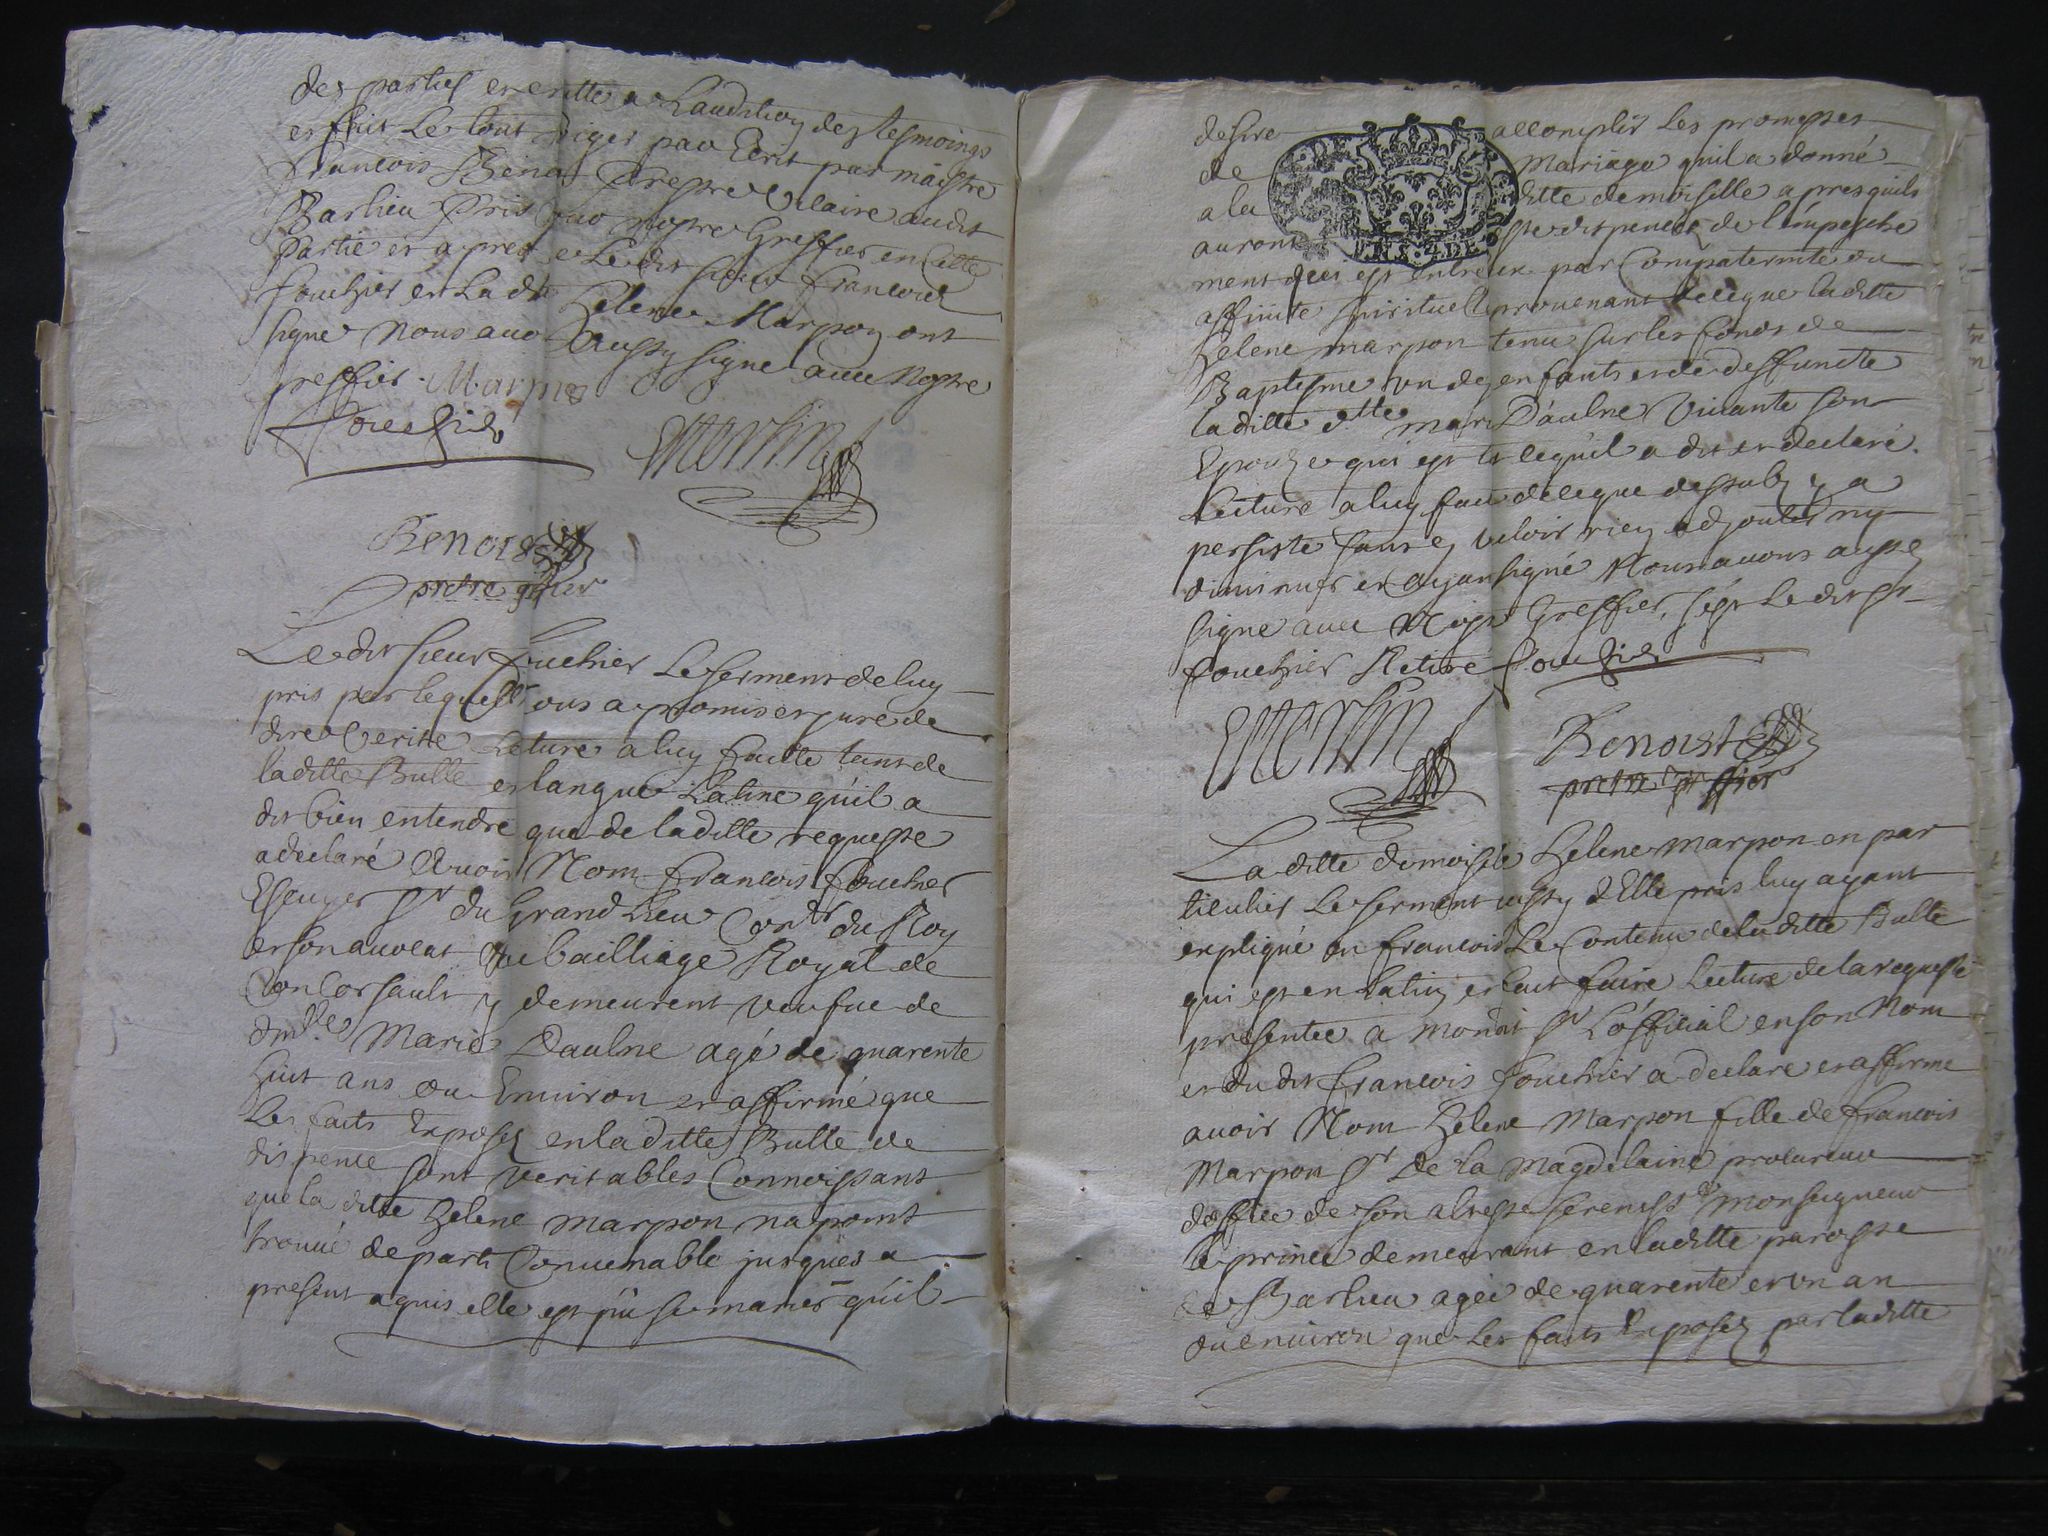 des parties et ensuitte a Lauditiõn des tesmoings
et fait le tout rediger par Ecrit par maistre
françois Benoist Prestre Vicaire audit
Barlieu Pris pour nostre Greffier en cette
partie et apres que Ledit sieur francois
fouchier et La ditte helene Marpon ont
signé Nous avons Aussy signé avec Nostre
greffier. Marpon
Fouchier Merlin
Benoist
pretre gffier
Le dit sieur fouchier Le serment de luy
pris par lequel Nous a promis et juré de
dire Verité Lecture a luy faitte tant de
laditte Bulle en langue Latine quil a
dit bien entendre que de laditte requeste
a declaré Avoir Nom francois fouchier
Escuyer sr du Grand Lieu Conr du Roy
et son avocat Au bailliage Royal de
Concorsault y demeurent veufue de
dmlle Marie Daulne agé de quarente
huit ans ou Environ et affirmé que
Les faits Exposez en laditte Bulle de
dispence sont veritables Connoissant
que la ditte helene Marpon na point
trouué de parti Conuenable jusques a
present a quis elle ept pu se marier quil
desire accomplir les promesses
de Mariage quil a donné
a la ditte demoiselle apres quils
auront dispence de lempesche
ment qui est entreux par Compaternité ou
affinité spirituelle prouenant de ce que laditte
helene marpon tenu sur les fonds de
Baptesme un des enfants et de deffuncte
laditte dlle mari Daulne Viuante son
Epouze qui est ce quil a dit et declaré.
Lecture a luy faite de ce que dessubz y a
persisté sans y vuloir rien adjouter ny
diminuer et ayant signé Nous avons aussy
signe avec Nostre Greffier, sest Le dit sr
fouchier Retiré Fouchier
Merlin Benoist
pretre greffier
La ditte demoiselle helene marpon en par
ticulier Le serment aussy d'Elle pris luy ayant
expliqué en francois Le Contenu de laditte Bulle
qui est en Latin et fait faire Lecture de la requeste
presentée a mondit sr L'official en son Nom
et du dit francois fouchier a declaré et affirmé
avoir Nom helene Marpon fille de francois
Marpon sr De la Magdelaine procureur
doffice de son altesse sereniss Monseigneur
le prince demeurant en laditte paroisse
de Barlieu agée de quarente et un an
ou environ que Les faits Exposez par laditte